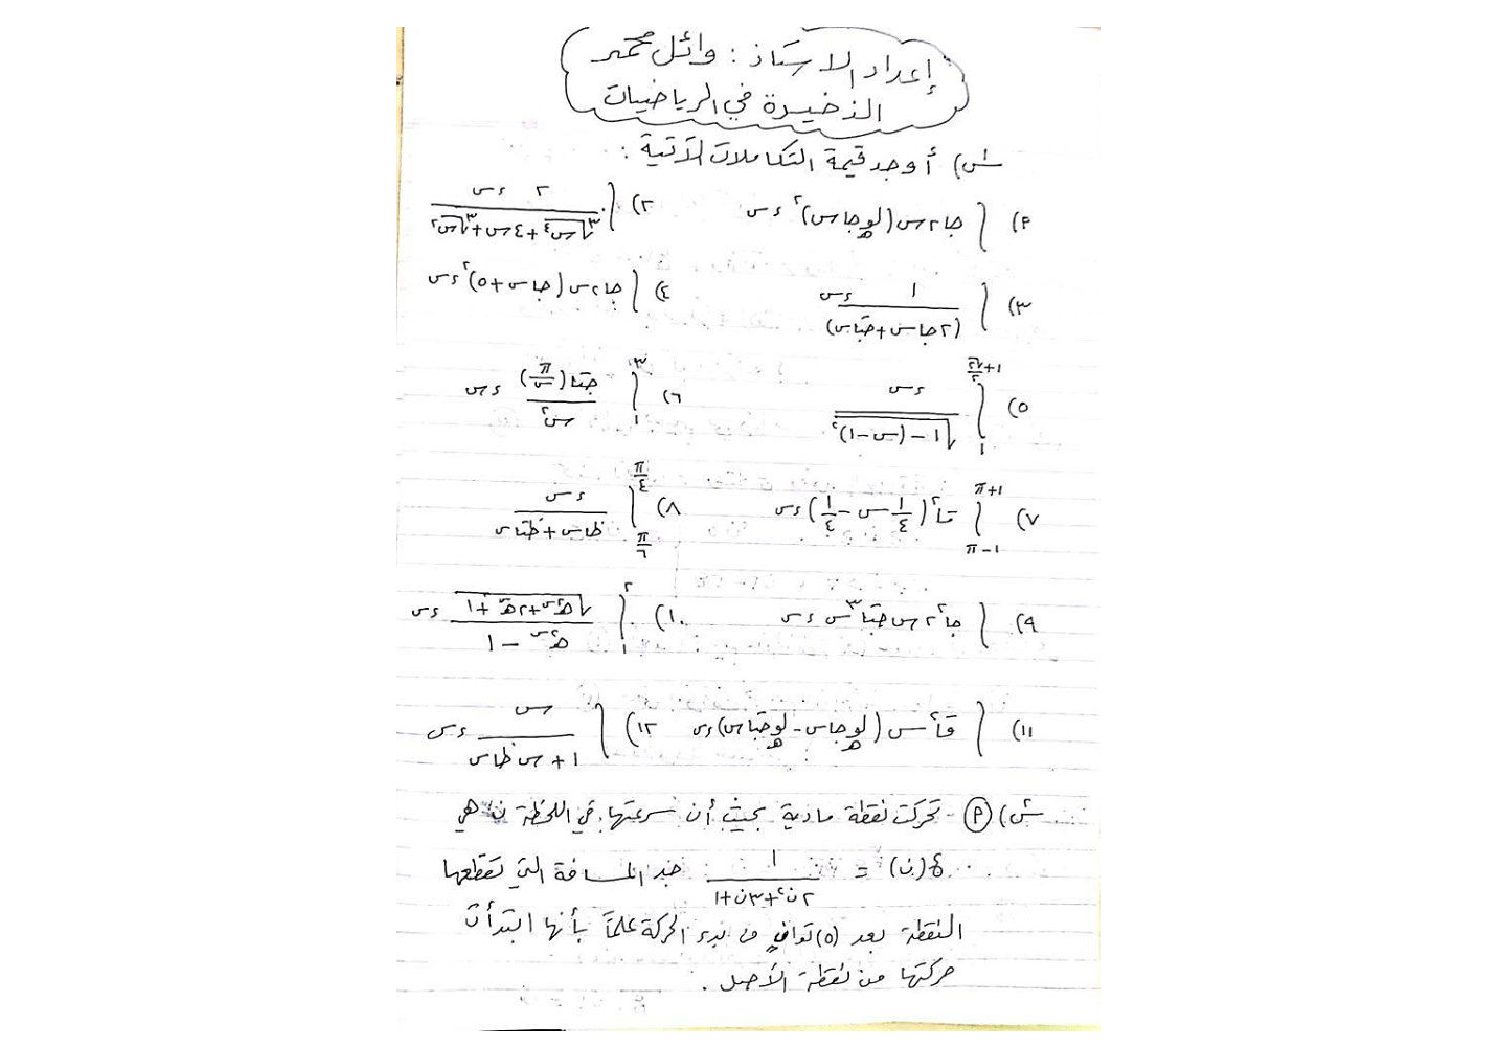 إعداد الاستاذ : وائل محمد
الذخيرة في الرياضيات
س) أوجد قيمة التكاملات الآتية :
١) ∫ جا٢س (لوهـ جاس)^٢ ءس
٢) ∫ ٢ ءس / (∛س^٤ + ٤س + ∛س^٢)
٣) ∫ ١ / (٢جاس + جتاس) ءس
٤) ∫ جا٢س (جاس + ٥)^٢ ءس
٥) ∫ ءس / √(١ - (س - ١)^٢)
٦) ∫ من ١ إلى ٣ جتا(π/س) / س^٢ ءس
٧) ∫ من π-١ إلى π+١ قا^٢(١/٤ س - ١/٤) ءس
٨) ∫ من π/٦ إلى π/٤ ءس / (ظاس + ظتاس)
٩) ∫ جا^٢ ٢س جتا^٣ س ءس
١٠) ∫ من ١ إلى ٢ √(هـ^٢س + ٢هـ^س + ١) / (هـ^٢س - ١) ءس
١١) ∫ قا^٢س (لوهـ جاس - لوهـ جتاس) ءس
١٢) ∫ س / (١ + س ظاس) ءس
س) P - تحركت نقطة مادية بحيث أن سرعتها في اللحظة ن هي
ع(ن) = ١ / (٢ن^٢ + ٣ن + ١) جد المسافة التي تقطعها
النقطة بعد (٥) ثوان من بدء الحركة علماً بأنها ابتدأت
حركتها من نقطة الأصل .